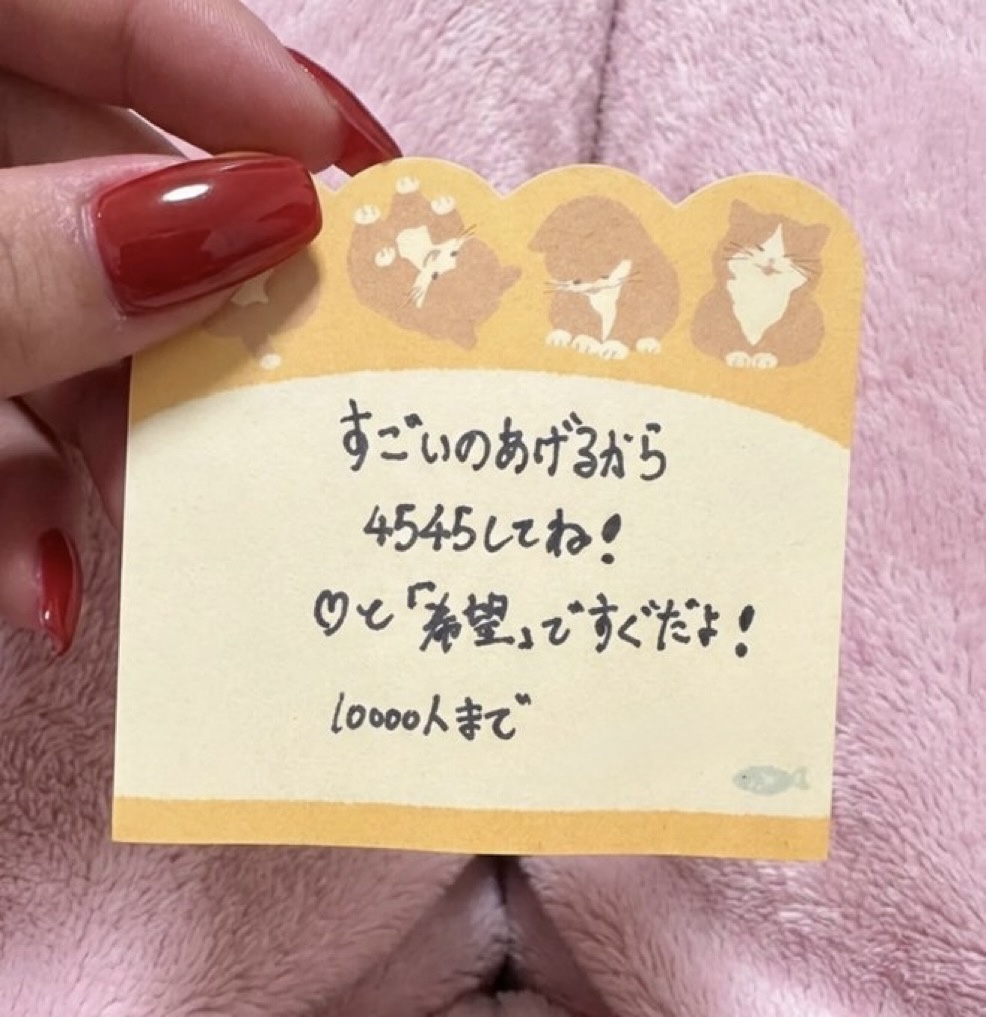 すごいのあげるから
4545してね!
♡と「希望」ですぐだよ!
10000人まで